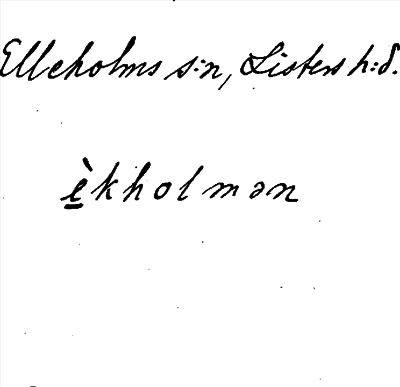 Elleholms s:n, Listers h:d.
è̲kholmən